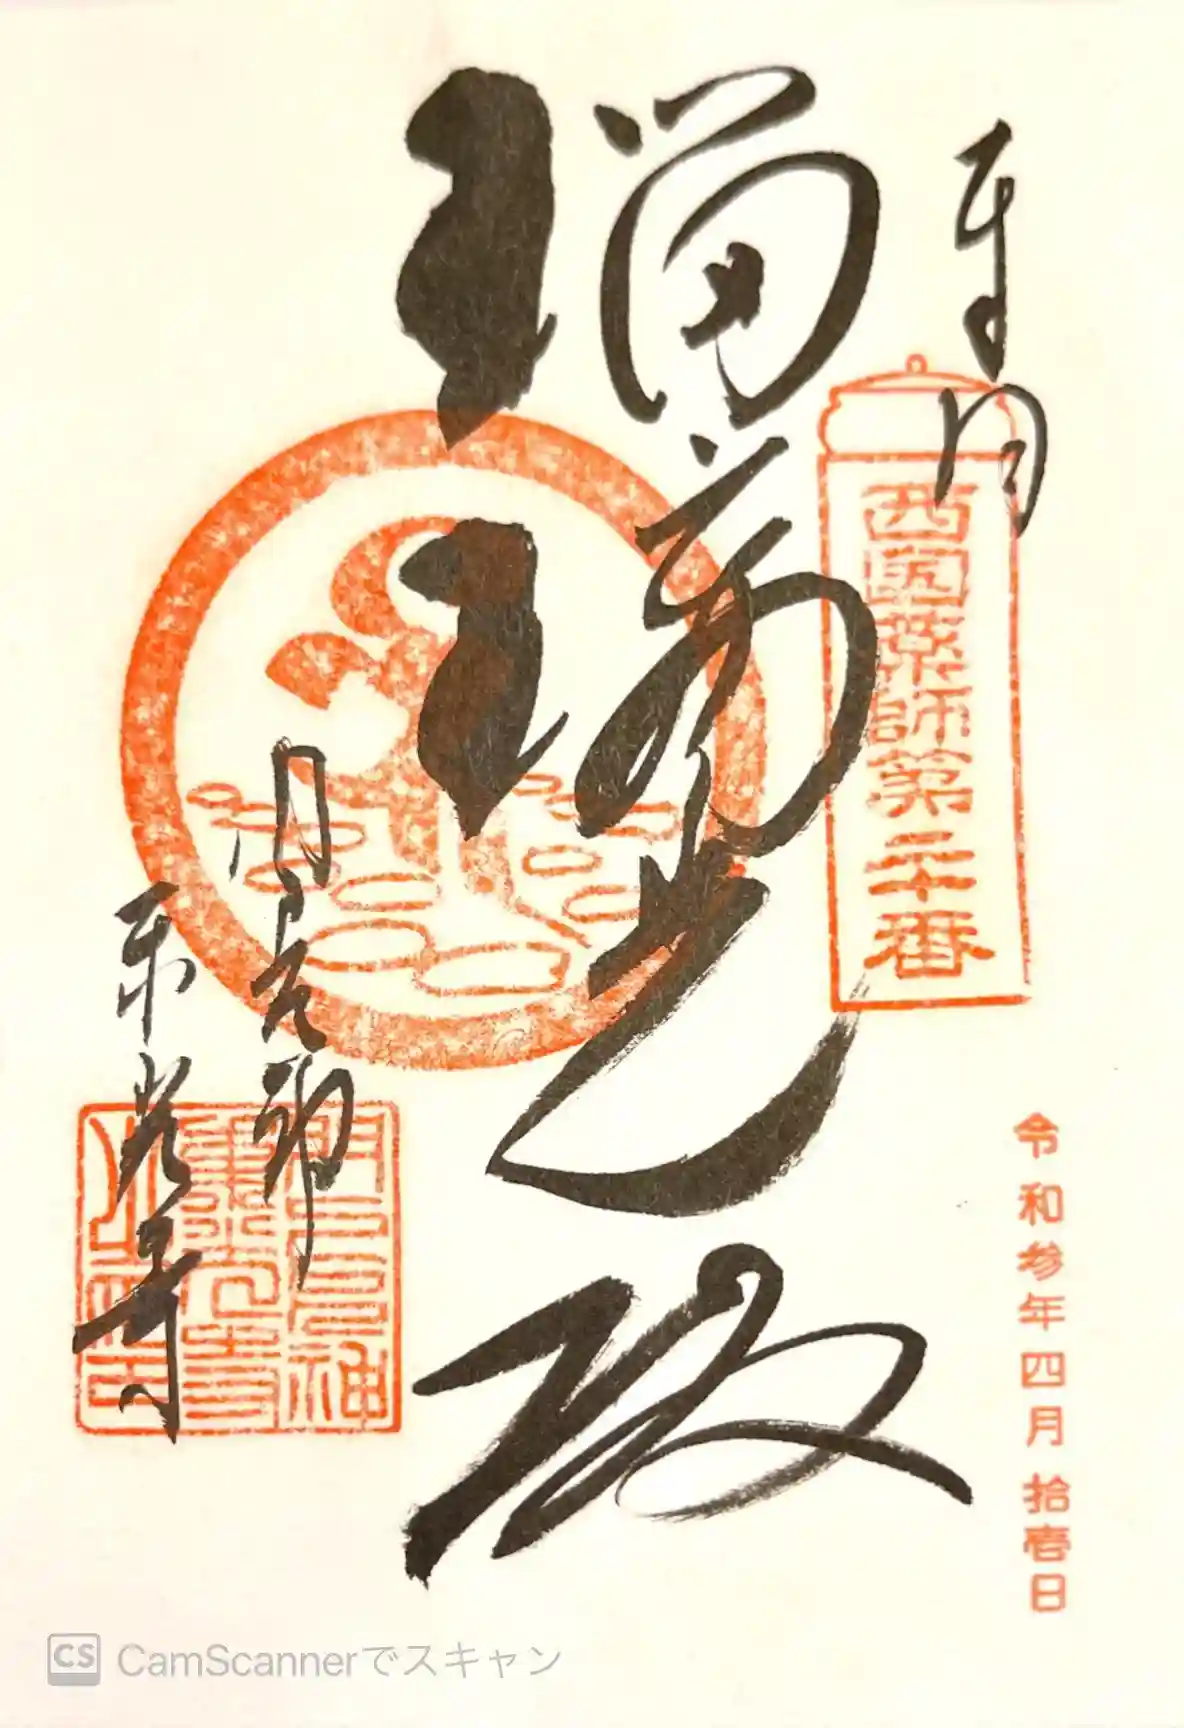 西国薬師第二十番
令和参年四月拾壱日
瑠璃光殿
門戸厄神
東光寺
CamScannerでスキャン